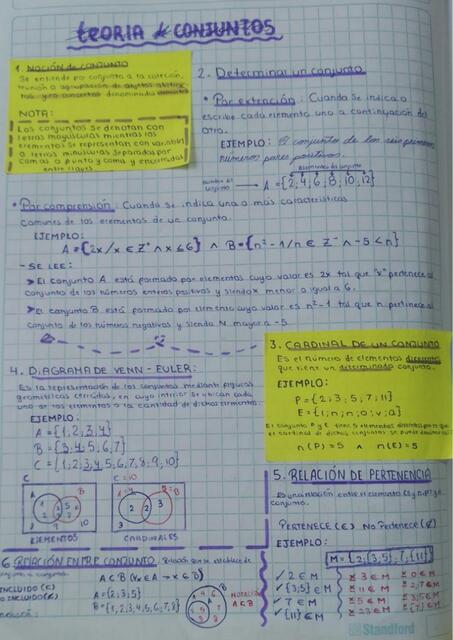 TEORIA de CONJUNTOS
1. NOCIÓN de CONJUNTO
Se entiende por conjunto a la colección,
reunión o agrupación de objetos
NOTA:
Los conjuntos se denotan con
letras mayúsculas mientras los
elementos se representan con variables
o letras minúsculas separadas por
comas o punto y coma y encerradas
entre llaves.
2. Determinar un conjunto
* Por extención: Cuando se indica o
escribe cada elemento uno a continuación del
otro.
EJEMPLO: El conjunto de los seis primeros
números pares positivos.
elementos del conjunto
nombre del conjunto → A = {2, 4, 6, 8, 10, 12}
* Por comprensión: Cuando se indica una o más características
comunes de los elementos de un conjunto.
EJEMPLO:
A = {2x/x ∈ Z⁺ ∧ x ≤ 6} ∧ B = {n²-1/n ∈ Z⁻ ∧ -5 < n}
- SE LEE:
> El conjunto A está formado por elementos cuyo valor es 2x tal que "x" pertenece al
conjunto de los números enteros positivos y siendo x menor o igual a 6.
> El conjunto B está formado por elementos cuyo valor es n²-1 tal que n pertenece al
conjunto de los números negativos y siendo N mayor a -5
3. CARDINAL DE UN CONJUNTO
Es el número de elementos diferentes
que tiene un determinado conjunto.
EJEMPLO:
P = {2; 3; 5; 7; 11}
E = {1; n; o; v; a}
El conjunto P y E tiene 5 elementos
el cardinal de dichos conjuntos se puede
n(P) = 5 ∧ n(E) = 5
4. DIAGRAMA DE VENN - EULER:
Es la representación de los conjuntos mediante figuras
geométricas cerradas, en cuyo interior se ubican cada
uno de los elementos o la cantidad de dichos elementos.
EJEMPLO:
A = {1, 2, 3, 4}
B = {3, 4, 5, 6, 7}
C = {1, 2, 3, 4, 5, 6, 7, 8, 9, 10}
C
C = 10
A
B
10
2 2 3
ELEMENTOS
CARDINALES
5. RELACIÓN DE PERTENENCIA
Es una relación entre el elemento
conjunto.
PERTENECE (∈) No Pertenece (∉)
EJEMPLO:
M = {2, {3,5}, 7, {11}}
✓ 2 ∈ M
✓ {3;5} ∈ M
✓ 7 ∈ M
✓ {11} ∈ M
x 3 ∈ M
x 11 ∈ M
x 5 ∈ M
6 RELACIÓN ENTRE CONJUNTO
INCLUIDO (⊂)
A ⊂ B (∀x ∈ A → x ∈ B)
A = {2; 3; 5}
B = {1, 2, 3, 4, 5, 6, 7, 8}
NOTACIÓN
A ⊂ B
B
Standford